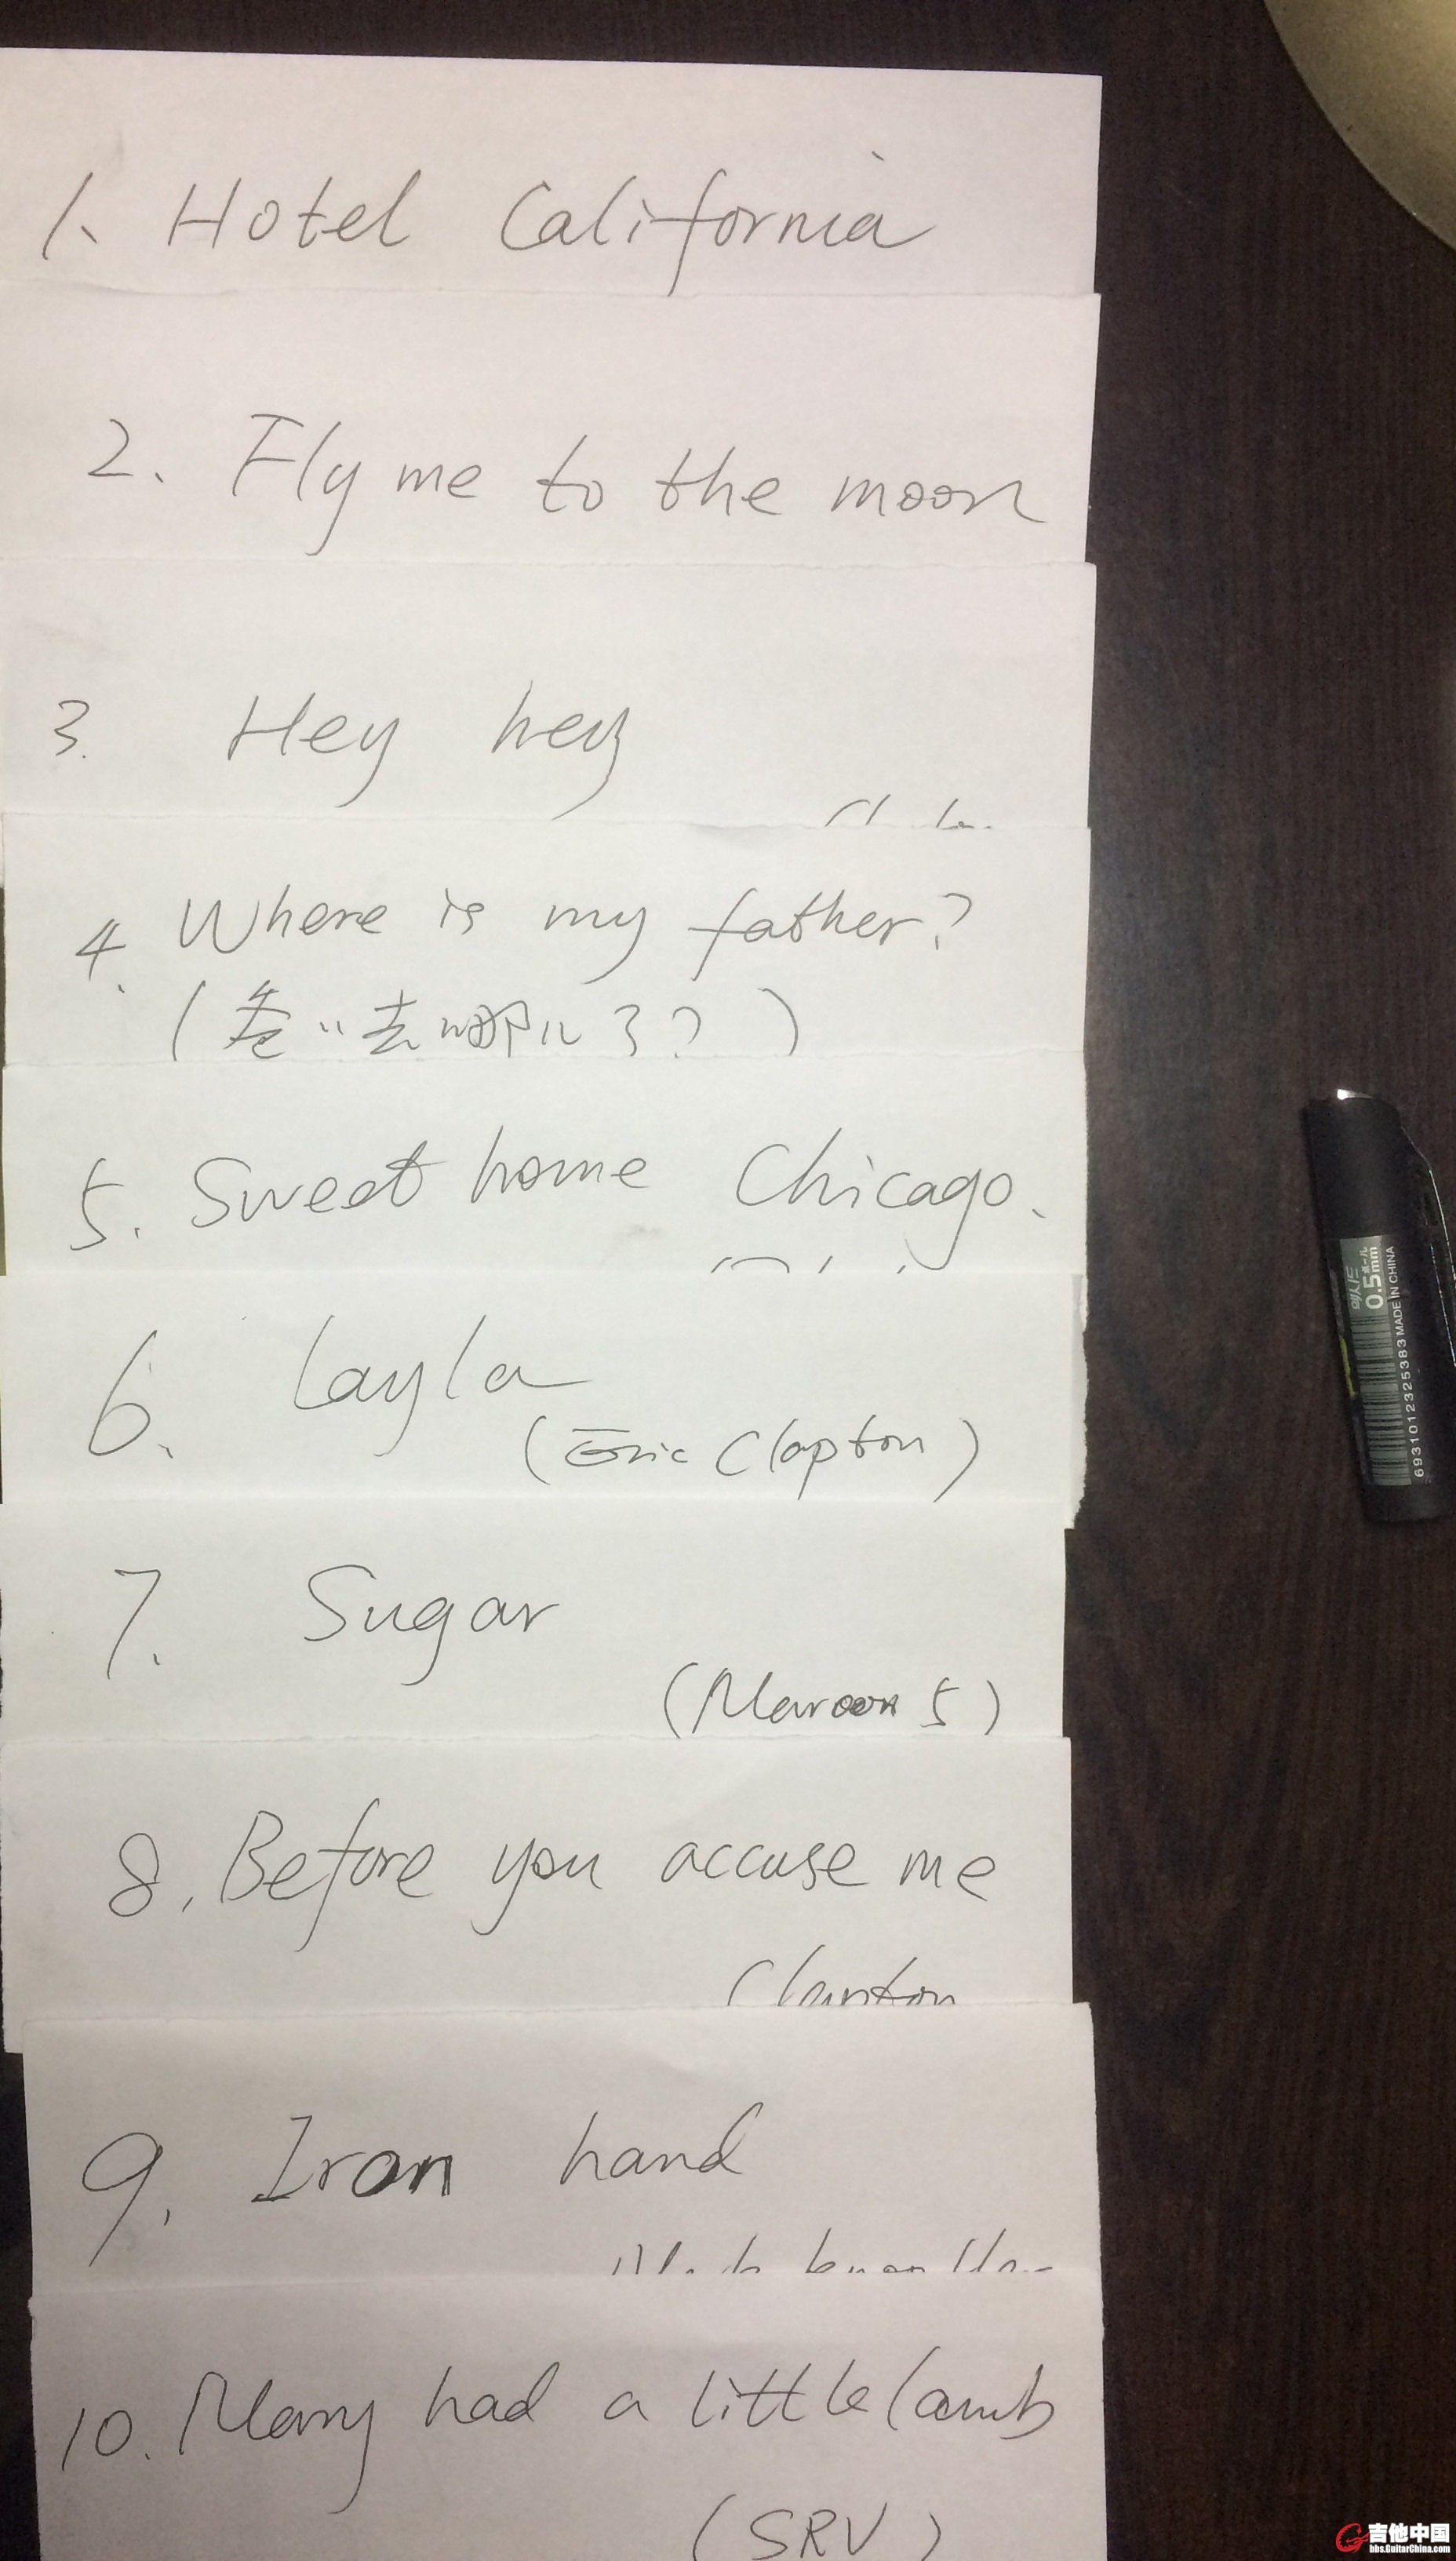 1. Hotel California
2. Fly me to the moon
3. Hey hey
4. Where is my father?
(爸〃去哪儿了?)
5. Sweet home Chicago.
6. Layla
(Eric Clapton)
7. Sugar
(Maroon 5)
8. Before you accuse me
Clapton
9. Iron hand
10. Mary had a little lamb
(SRV)
0.5mm
ボール
MADE IN CHINA
6931012325383
吉他中国
bbs.GuitarChina.com